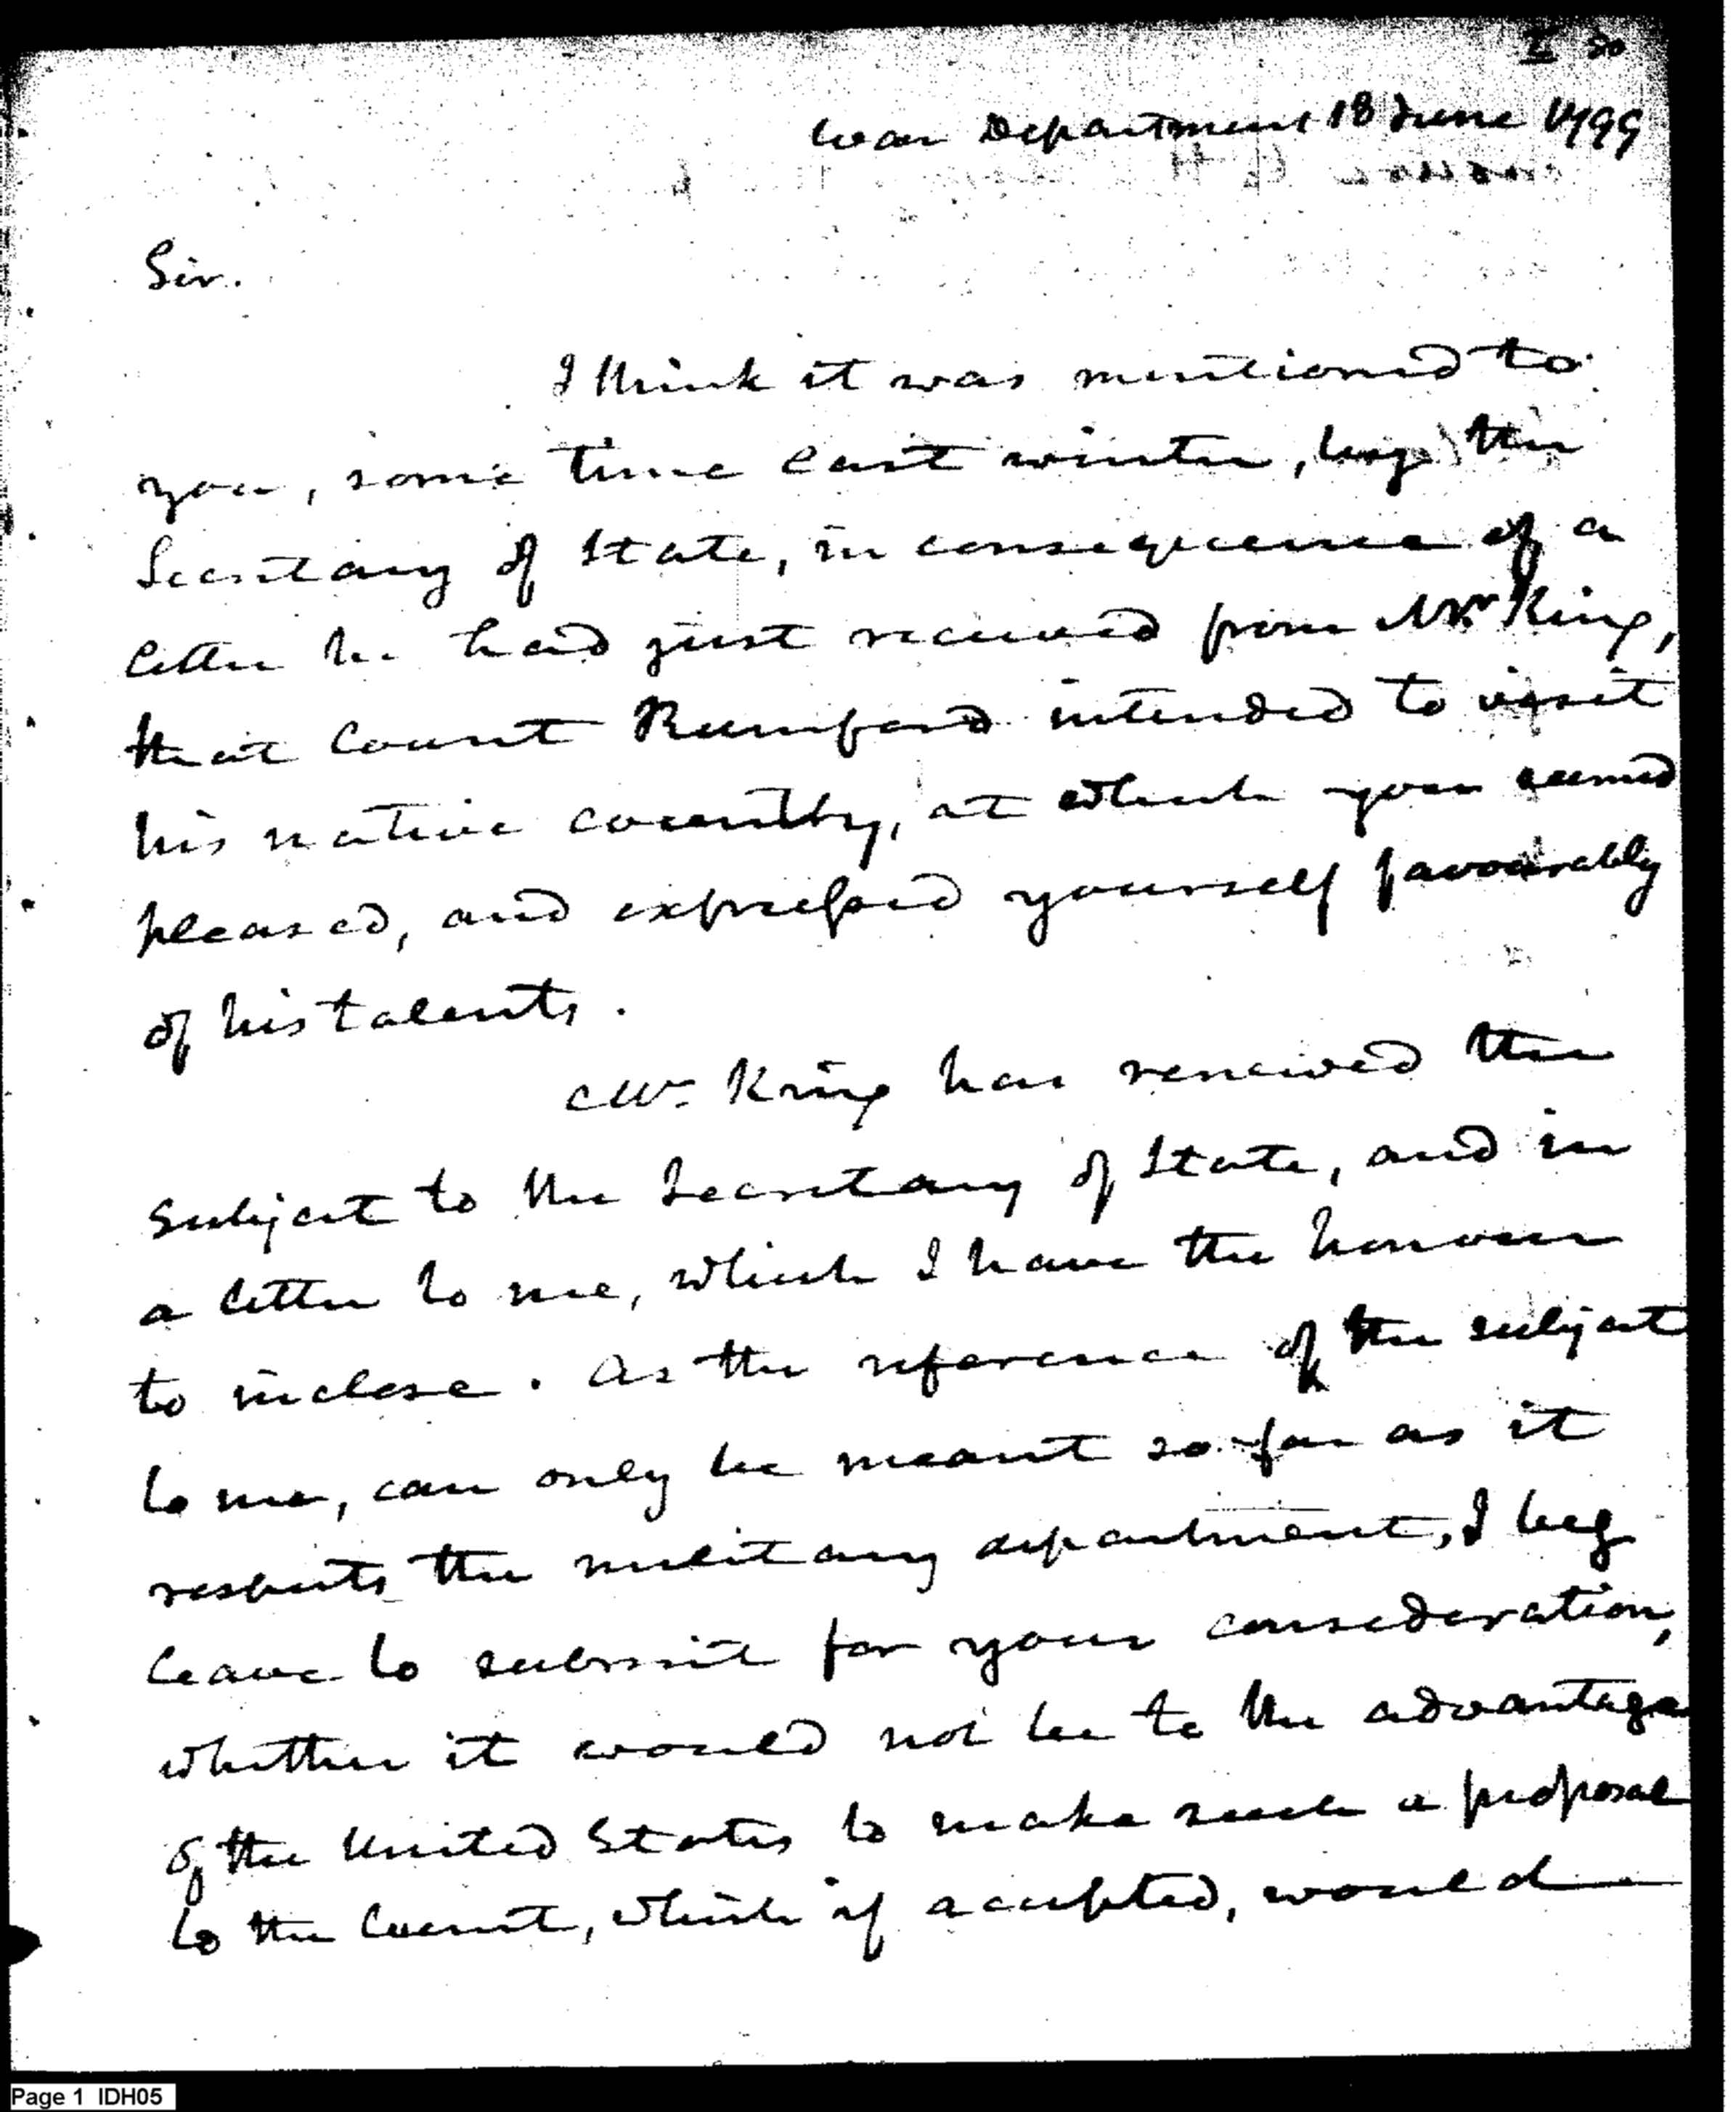 War Department 18 June 1799
Sir.
I think it was mentioned to
you, some time last winter, by the
Secretary of State, in consequence of a
letter he had just received from Mr King,
that Count Rumford intended to visit
his native country, at which you seemed
pleased, and expressed yourself favourably
of his talents.
Mr King has renewed the
subject to the Secretary of State, and in
a letter to me, which I have the honour
to inclose. As the reference of the subject
to me, can only be meant so far as it
respects the military department, I beg
leave to submit for your consideration,
whether it would not be to the advantage
of the United States to make such a proposal
to the Count, which if accepted, would
Page 1 IDH05